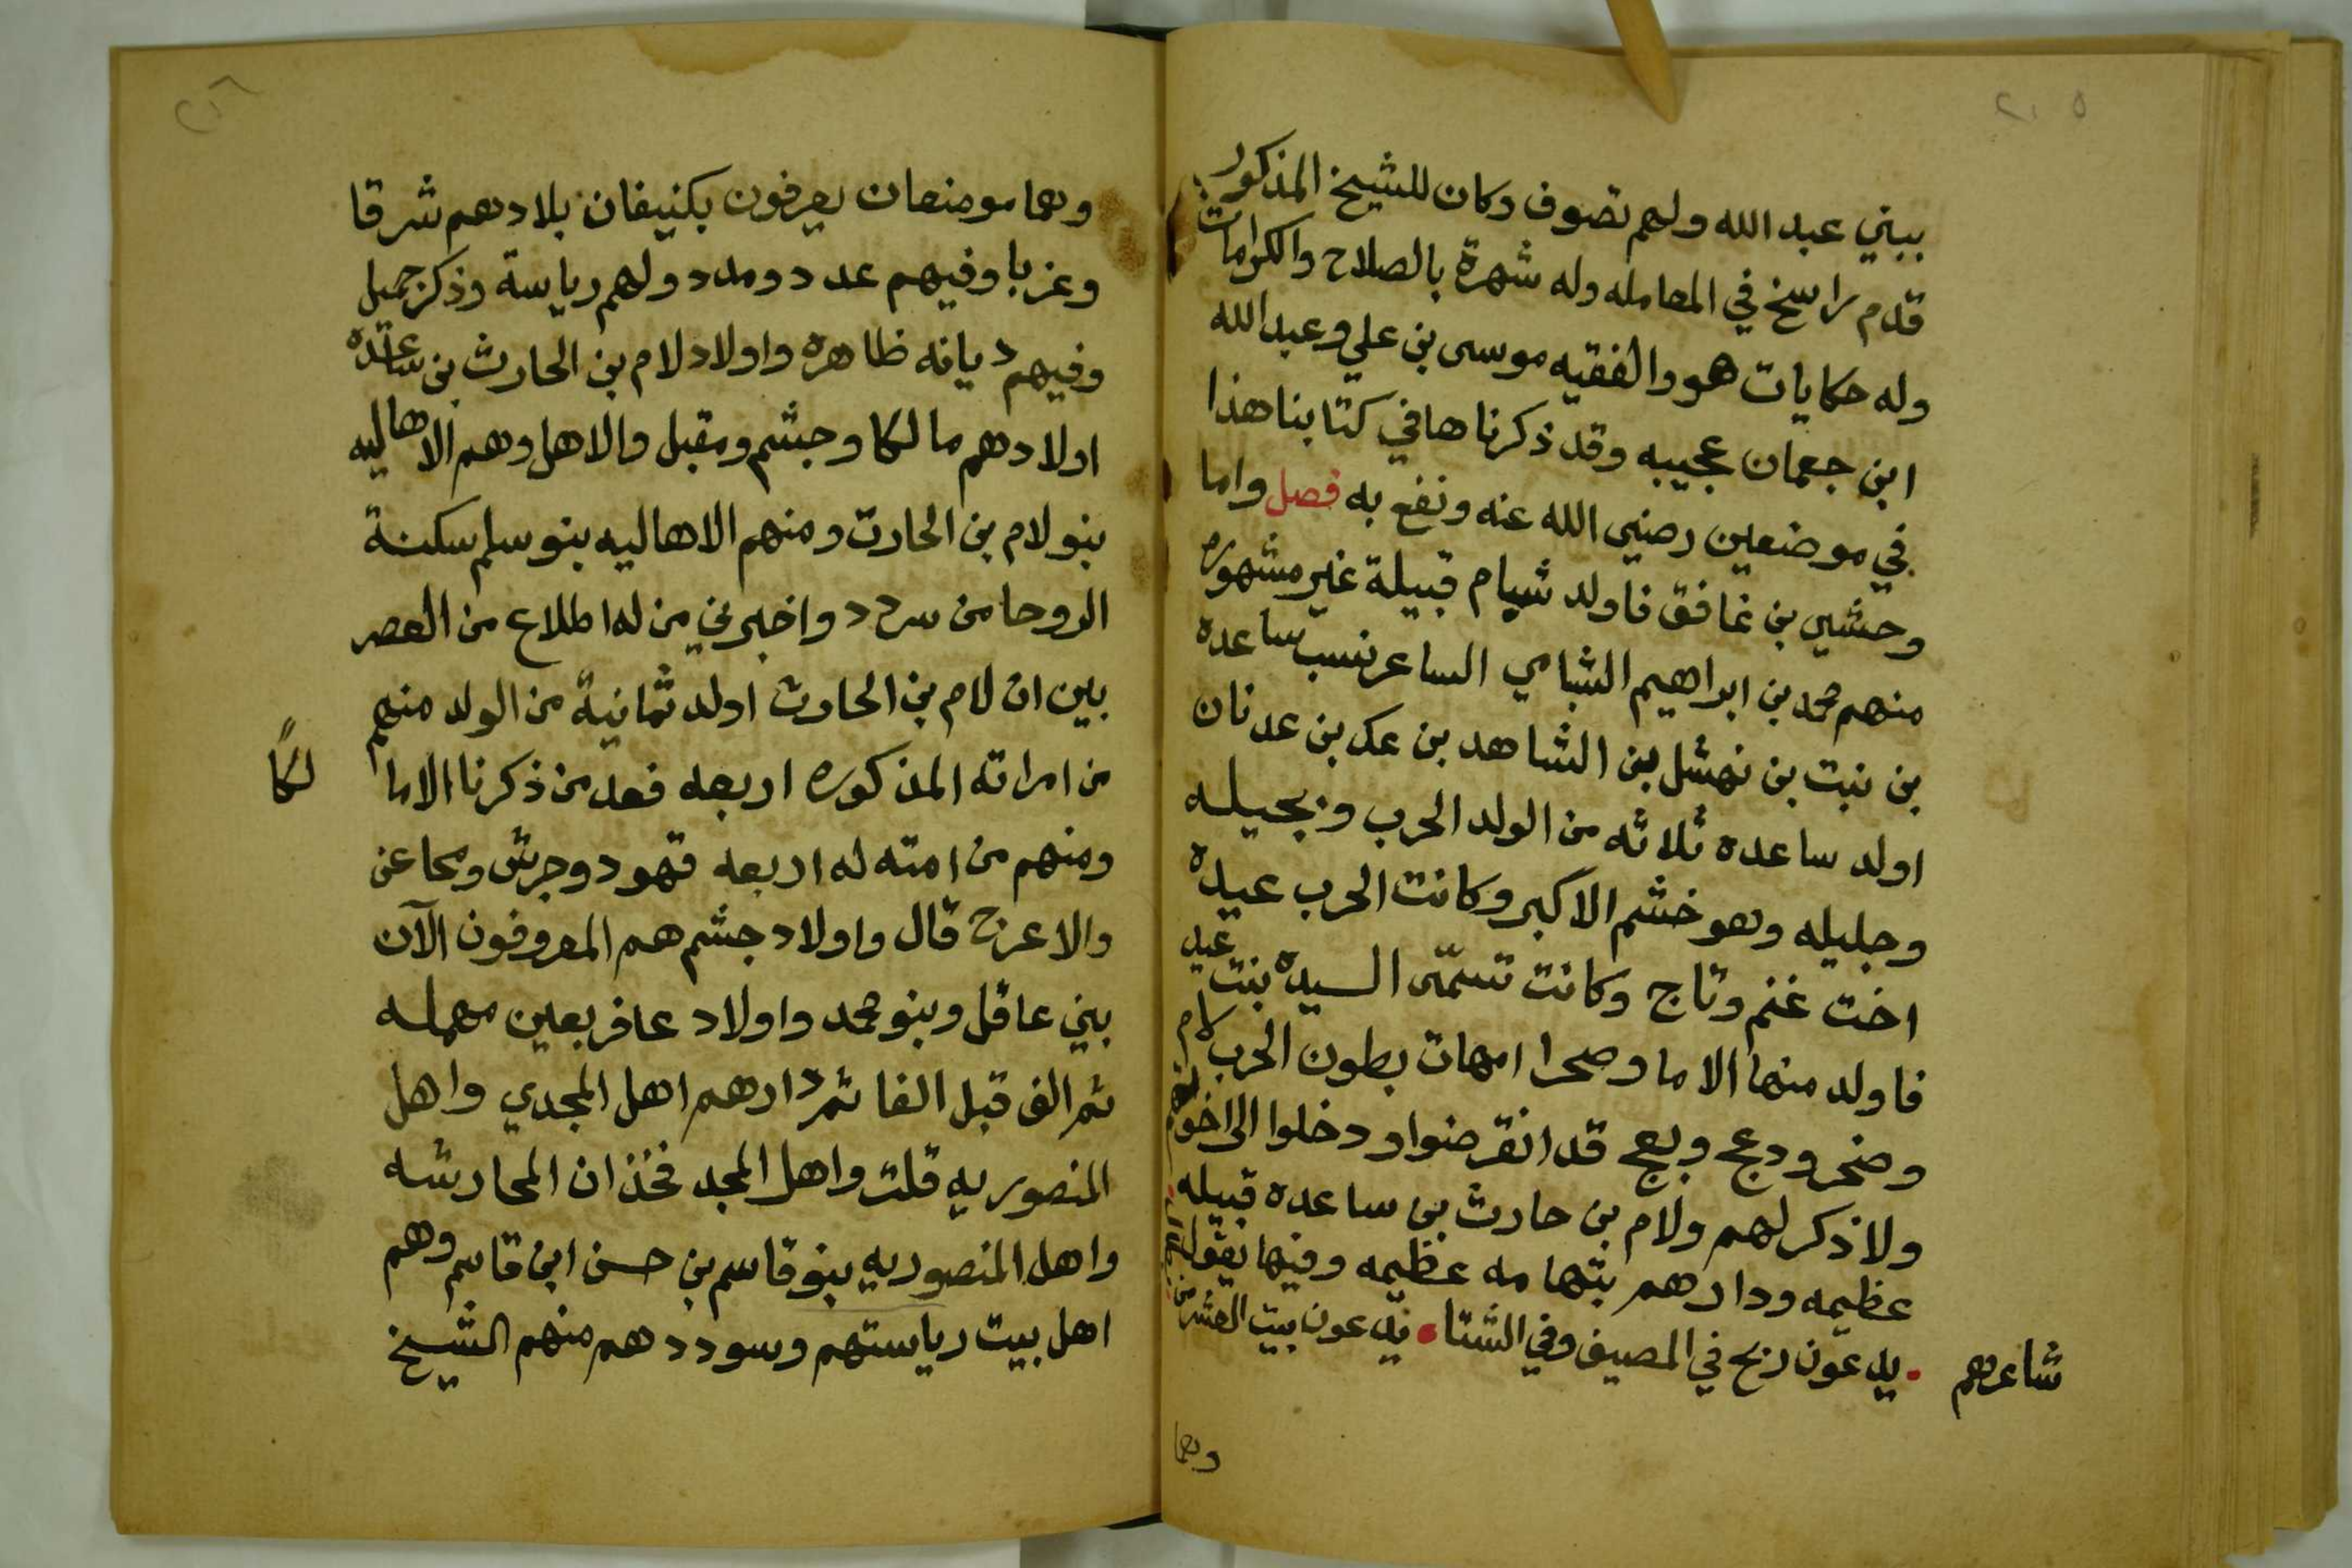 ٢٠٥
ببني عبد الله ولهم تصوف وكان للشيخ المذكور
قدم راسخ في المعامله وله شهرة بالصلاح والكرامات
وله حكايات هو والفقيه موسى بن علي وعبد الله
ابن جعمان عجيبه وقد ذكرناها في كتابنا هذا
في موضعين رضي الله عنه ونفع به فصل واما
وحشي بن غافق فاولد شيام قبيلة غير مشهوره
منهم محمد بن ابراهيم الشامي الساعر نسب ساعده
بن نبت بن نهشل بن الشاهد بن عك بن عدنان
اولد ساعده ثلاثه من الولد الحرب وبجيله
وجليله وهو خشم الاكبر وكانت الحرب عيده
اخت غنم وتاج وكانت تسمّى السيدة بنت عيد
فاولد منها الاما وصحرا امهات بطون الحرب لام
وضحر ودعج وبعج قد انقرضوا ودخلوا الى اخوتهم
ولا ذكر لهم ولام بن حارث بن ساعده قبيله
عظيمه ودارهم بتهامه عظيمه وفيها يقول
شاعرهم يدعون رمح في المصيف وفي الشتا يدعون بيت العشر
وهما
وهما موضعان يعرفون بكنيفان بلادهم شرقا
وغربا وفيهم عدد ومدد ولهم رياسة وذكر جميل
وفيهم ديانه ظاهره واولاد لام بن الحارث بن ساعده
اولادهم مالكا وجشم ومقبل والاهل وهم الاهاليه
بنو لام بن الحارث ومنهم الاهاليه بنو سلم سكنة
الروحا من سردد واخبرني من له اطلاع من العصر
بين ان لام بن الحارث اولد ثمانية من الولد منهم
من امراته المذكوره اربعه فعد من ذكرنا الاما لكًا
ومنهم من امته له اربعه قهود وجرش ومحاعن
والاعرج قال واولاد جشم هم المعروفون الآن
ببني عاقل وبنو محمد واولاد عافر بعين مهمله
ثم الف قبل الفا ثم دارهم اهل المجدي واهل
المنصوريه قلت واهل المجد فخذان المحارشه
واهل المنصوريه بنو قاسم بن حسن ابن قاسم وهم
اهل بيت رياستهم وسوددهم منهم الشيخ